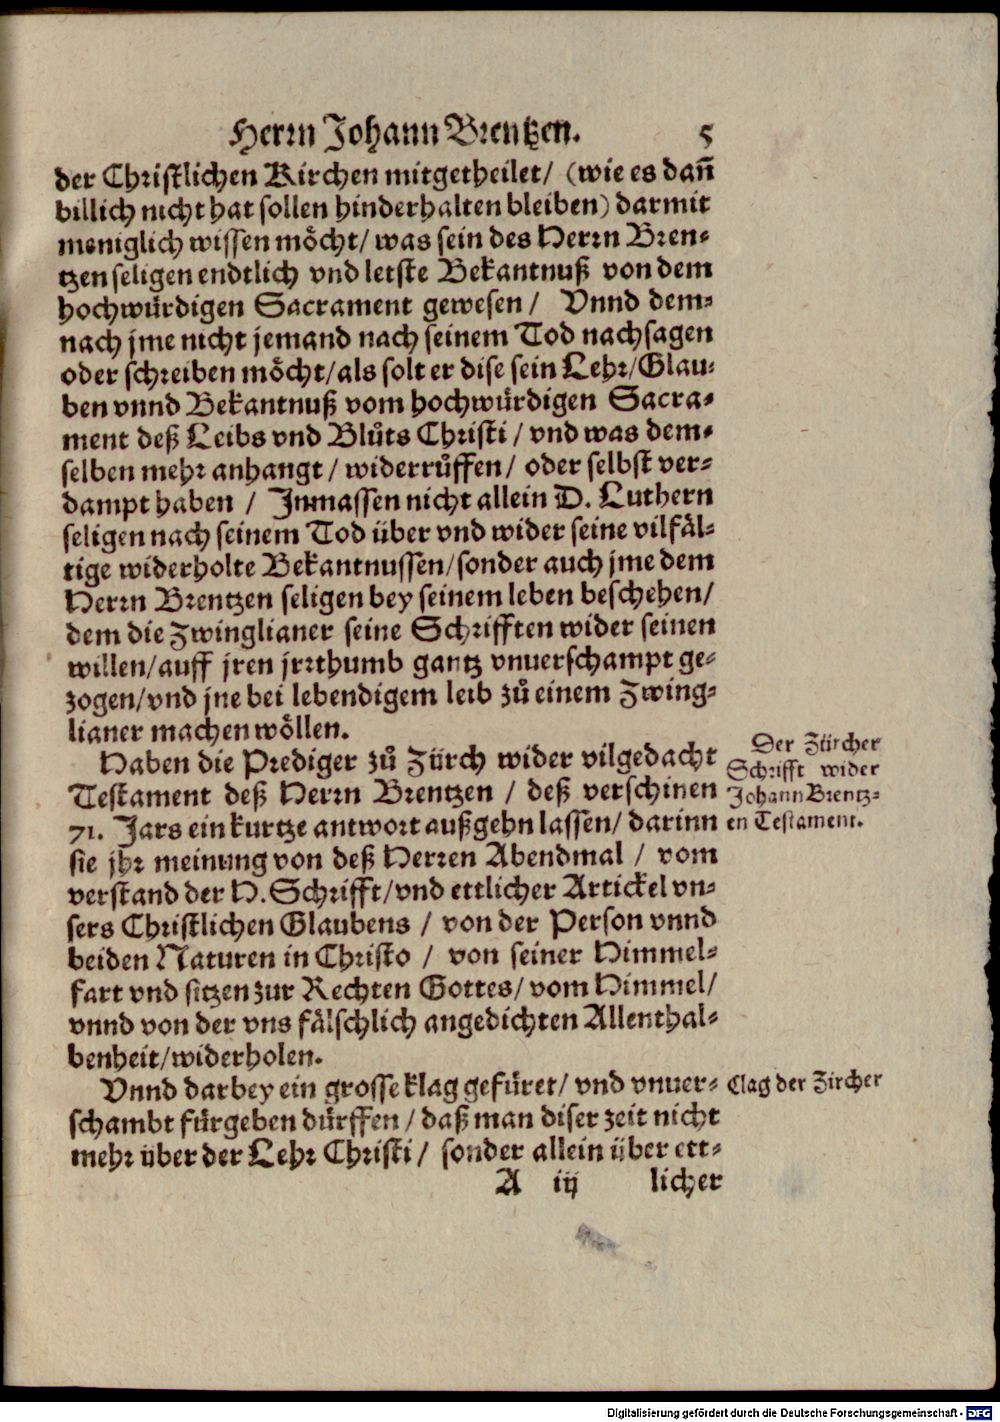 Herrn Johann Brentzen. 5
der Christlichen Kirchen mitgetheilet/ (wie es dañ
billich nicht hat sollen hinderhalten bleiben) darmit
meniglich wissen möcht/ was sein des Herrn Bren-
tzen seligen endtlich vnd letste Bekantnuß von dem
hochwürdigen Sacrament gewesen/ Vnnd dem-
nach jme nicht jemand nach seinem Tod nachsagen
oder schreiben möcht/ als solt er dise sein Lehr/ Glau-
ben vnnd Bekantnuß vom hochwürdigen Sacra-
ment deß Leibs vnd Blůts Christi/ vnd was dem-
selben mehr anhangt/ widerrůffen/ oder selbst ver-
dampt haben/ Jnmassen nicht allein D. Luthern
seligen nach seinem Tod über vnd wider seine vilfäl-
tige widerholte Bekantnussen/ sonder auch jme dem
Herrn Brentzen seligen bey seinem leben beschehen/
dem die Zwinglianer seine Schrifften wider seinen
willen/ auff jren jrrthumb gantz vnuerschampt ge-
zogen/ vnd jne bei lebendigem leib zů einem Zwing-
lianer machen wöllen.
Haben die Prediger zů Zürch wider vilgedacht
Testament deß Herrn Brentzen/ deß verschinen
71. Jars ein kurtze antwort außgehn lassen/ darinn
sie jhr meinung von deß Herren Abendmal/ vom
verstand der H. Schrifft/ vnd ettlicher Artickel vn-
sers Christlichen Glaubens/ von der Person vnnd
beiden Naturen in Christo/ von seiner Himmel-
fart vnd sitzen zur Rechten Gottes/ vom Himmel/
vnnd von der vns fälschlich angedichten Allenthal-
benheit/ widerholen.
Vnnd darbey ein grosse klag gefüret/ vnd vnuer-
schambt fürgeben dürffen/ daß man diser zeit nicht
mehr über der Lehr Christi/ sonder allein über ett-
A iij licher
Der Zürcher
Schrifft wider
Johann Brentz-
en Testament.
Clag der Zircher
Digitalisierung gefördert durch die Deutsche Forschungsgemeinschaft - DFG